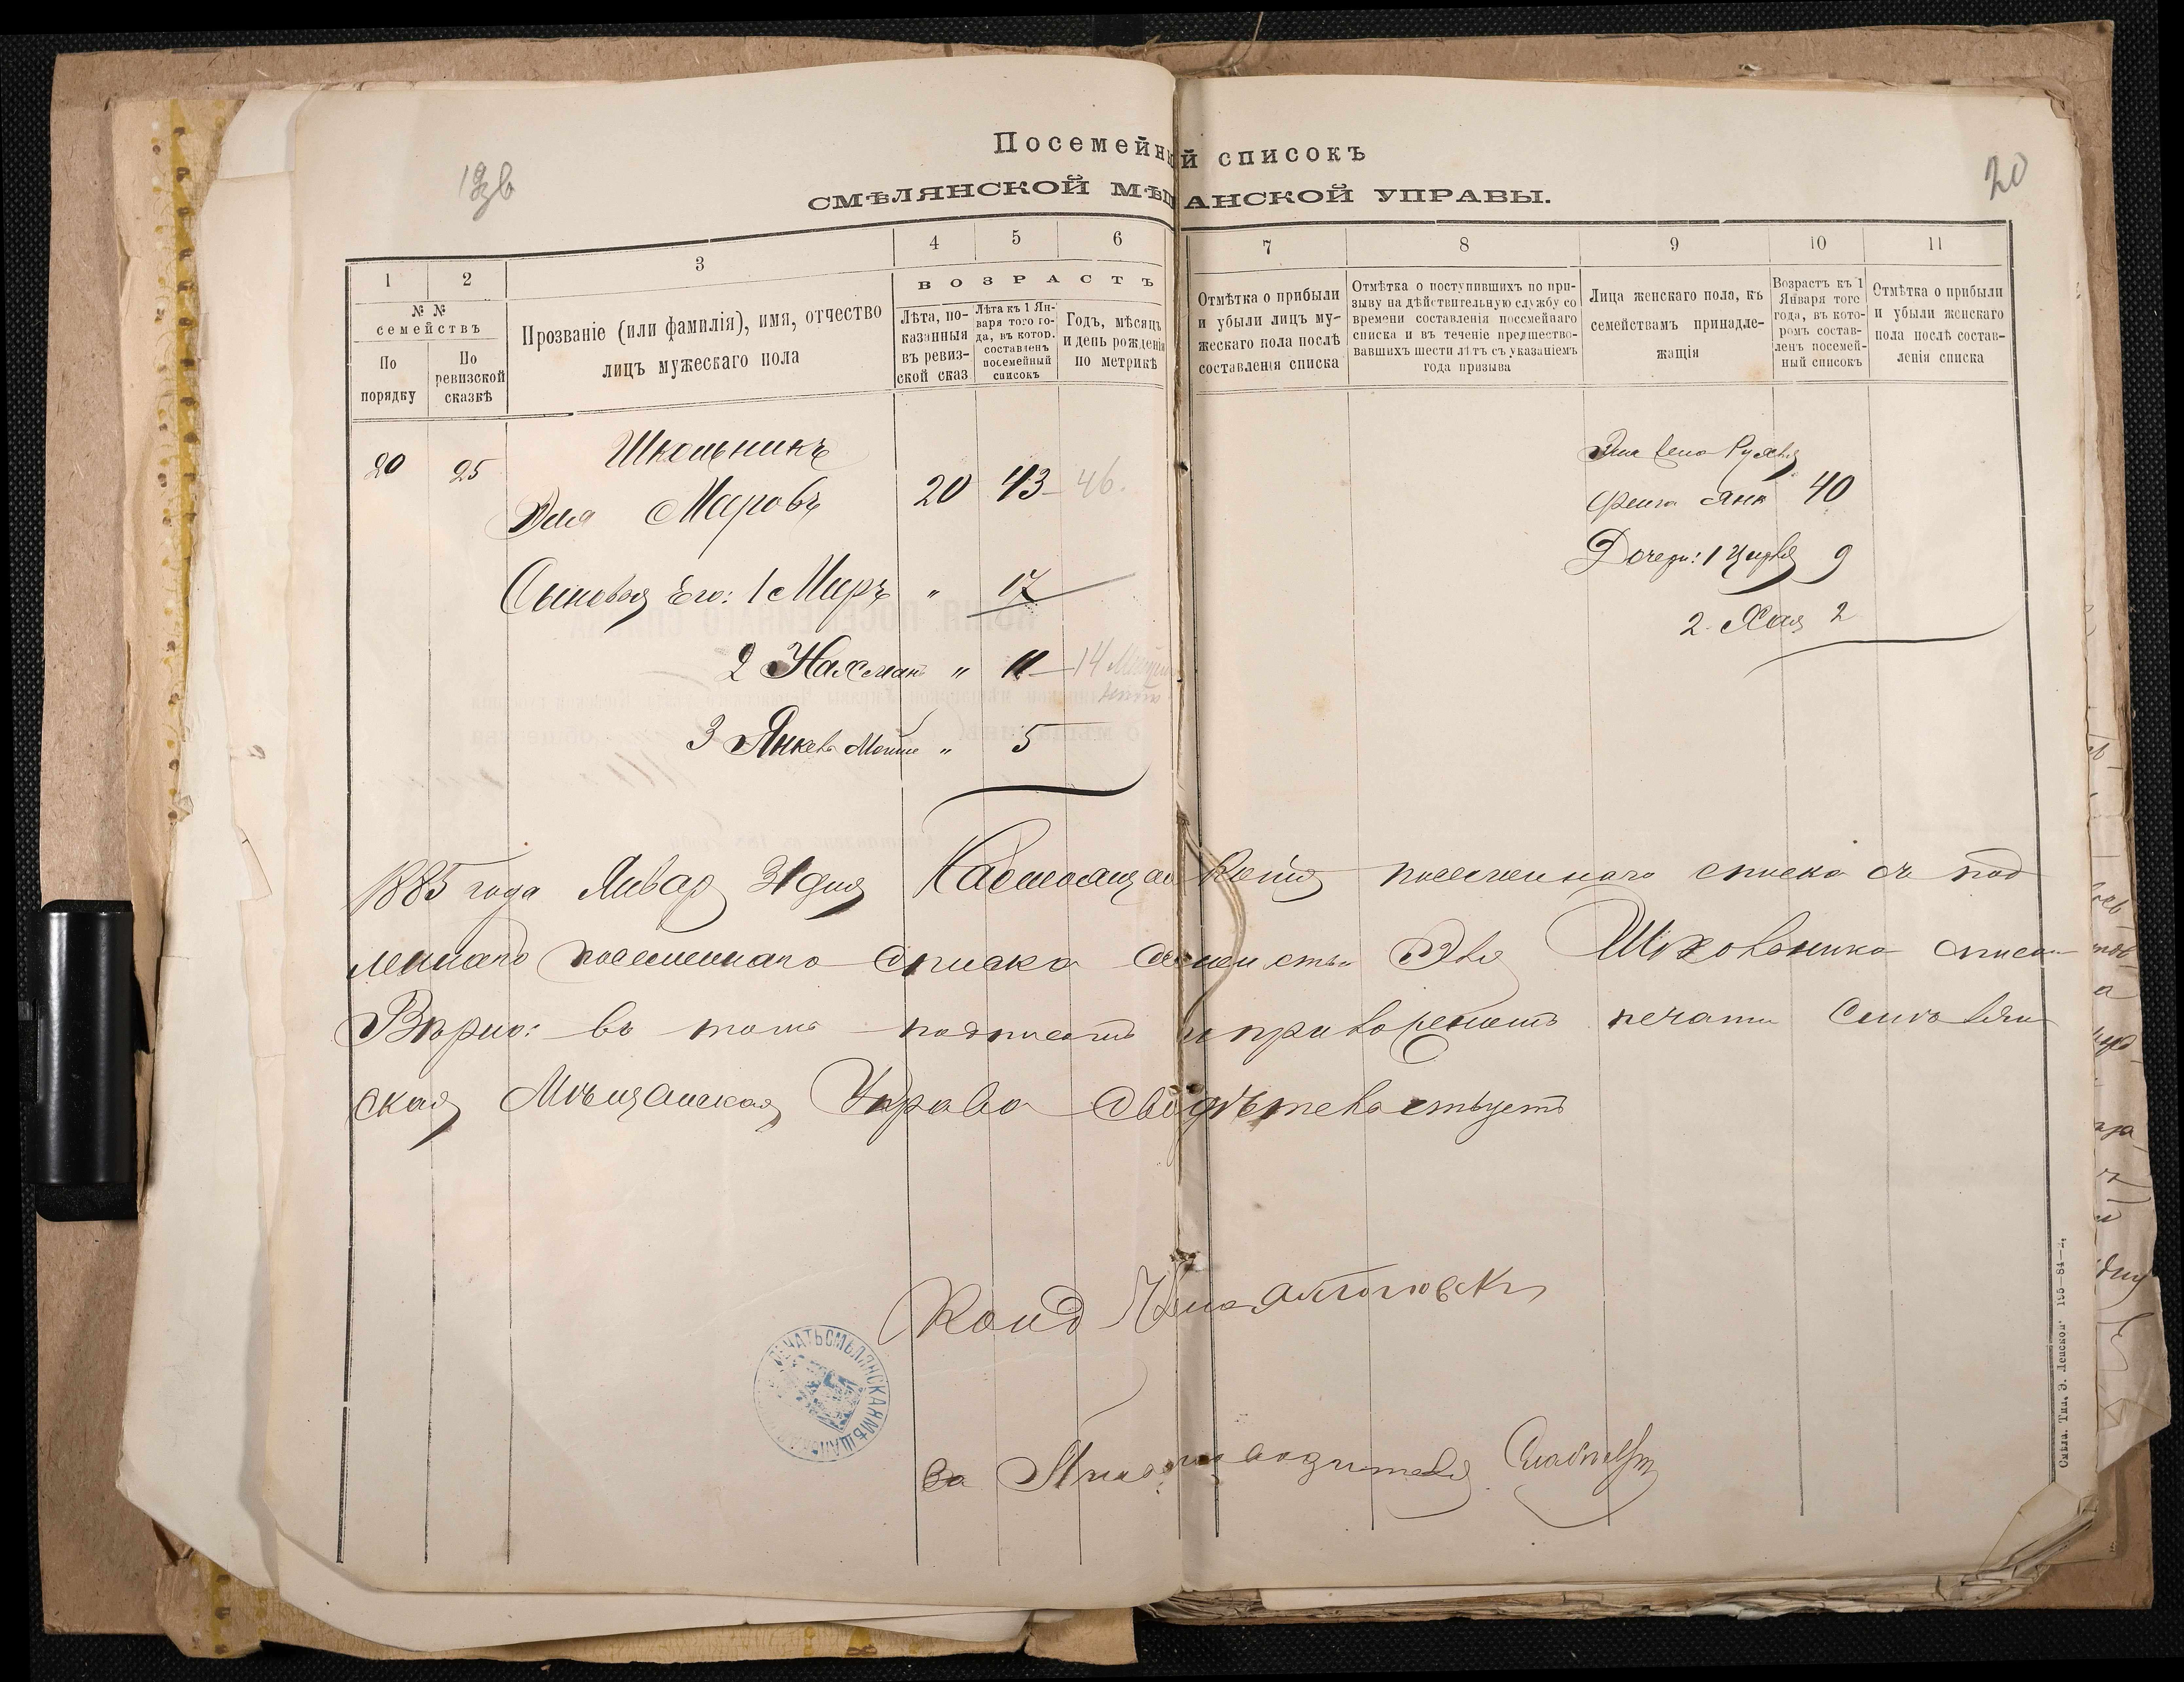 19об
20
Посемейный списокъ
СМѢЛЯНСКОЙ МѢЩАНСКОЙ УПРАВЫ.
1
2
3
4
5
6
7
8
9
10
11
№ №
семействъ
По
порядку
По
ревизской
сказкѣ
Прозваніе (или фамилія), имя, отчество
лицъ мужескаго пола
ВОЗРАСТЪ
Лѣта, по-
казанныя
въ ревиз-
ской сказ
Лѣта къ 1 Ян-
варя того го-
да, въ котор.
составленъ
посемейный
списокъ
Годъ, мѣсяцъ
и день рожденія
по метрикѣ
Отмѣтка о прибыли
и убыли лицъ му-
жескаго пола послѣ
составленія списка
Отмѣтка о поступившихъ по при-
зыву на дѣйствительную службу со
времени составленія посемейнаго
списка и въ теченіе предшество-
вавшихъ шести лѣтъ съ указаніемъ
года призыва
Лица женскаго пола, къ
семействамъ принадле-
жащія
Возрастъ къ 1
Января того
года, въ кото-
ромъ состав-
ленъ посемей-
ный списокъ
Отмѣтка о прибыли
и убыли женскаго
пола послѣ состав-
ленія списка
20 25 Школьникъ
Эля Маровъ 20 43 46.
Сыновья Его: 1 Миръ " 17
2 Нахман " 11 14
3 Янкевъ Мойше " 5
40
Дочери: 1 9
2. Хая 2
1885 года Январ 31 дня Настоящая Копія посемейнаго списка съ под
линаго посемейнаго списка Эля Школьника списан
Вѣрно: въ томъ подписомъ и приложеніемъ печати Смѣлян
ская Мѣщанская Управа Свидѣтельствуетъ
За
ПЕЧАТЬ СМѢЛЯНСКАЯ МѢЩАНСКОЙ
Смѣла. Тип. Э.